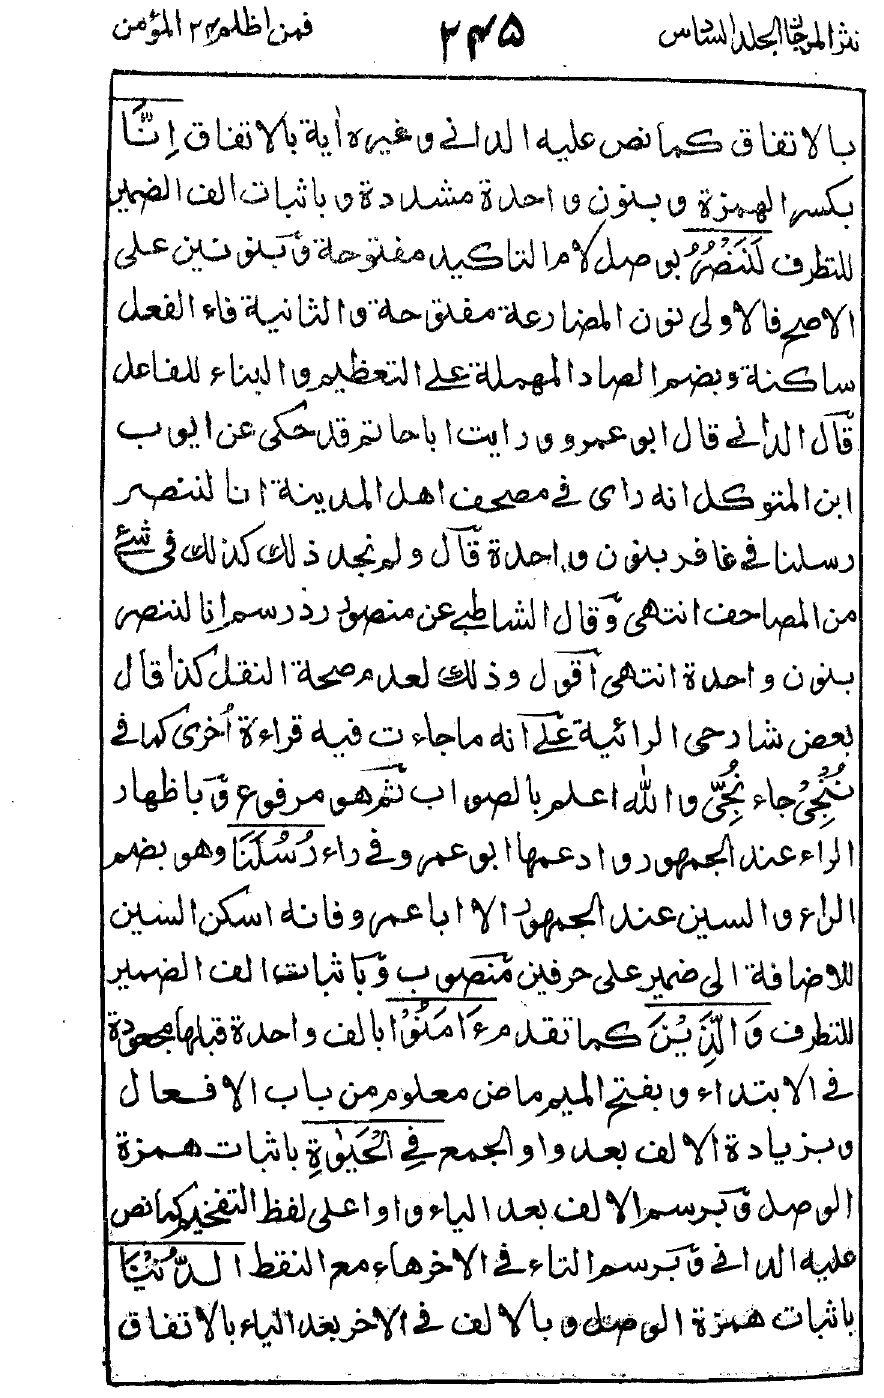 نثر المرجان الجلد السادس ٢٤٥ فمن اظلم ٢٤ المؤمن
بالاتفاق كما نص عليه الدانى وغيره أية بالاتفاق اِنَّا
بكسر الهمزة وبنون واحدة مشددة وباثبات الف الضمير
للتطرف لَنَنْصُرُ بوصل لام التاكيد مفتوحة وَّبنونين على
الاصح فالاولى نون المضارعة مفتوحة والثانية فاء الفعل
ساكنة وبضم الصاد المهملة على التعظيم والبناء للفاعل
قال الدانى قال ابو عمرو ورايت اباحاتم قد حكى عن ايوب
ابن المتوكل انه راى فى مصحف اهل المدينة انا لننصر
رسلنا فى غافر بنون واحدة قال ولم نجد ذلك كذلك فى شئ
من المصاحف انتهى وقال الشاطبى عن منصور رد رسم انا لننصر
بنون واحدة انتهى اقول وذلك لعدم صحة النقل كذا قال
بعض شارحى الرائية على انه ما جاءت فيه قراءة اُخرى كما فى
نُنْجِىْ جاء نُجِّىَ والله اعلم بالصواب ثم هو مرفوع وَّباظهار
الراء عند الجمهور وادغمها ابو عمرو فى راء رُسُلَنَا وهو بضم
الراء والسين عند الجمهور الا ابا عمرو فانه اسكن السين
للاضافة الى ضمير على حرفين مَّنصوب وَّباثبات الف الضمير
للتطرف وَالَّذِيْنَ كما تقدم ءَامَنُوْا بالف واحدة قبلها مجعودة
فى الابتداء وبفتح الميم ماض معلوم من باب الافعال
وبزيادة الالف بعد واو الجمع فِى الْحَيٰوةِ باثبات همزة
الوصل وَّبرسم الالف بعد الياء واوا على لفظ التفخيم كما نص
عليه الدانى وَّبرسم التاء فى الاخر هاء مع النقط الدُّنْيَا
باثبات همزة الوصل وبالالف فى الاخر بعد الياء بالاتفاق